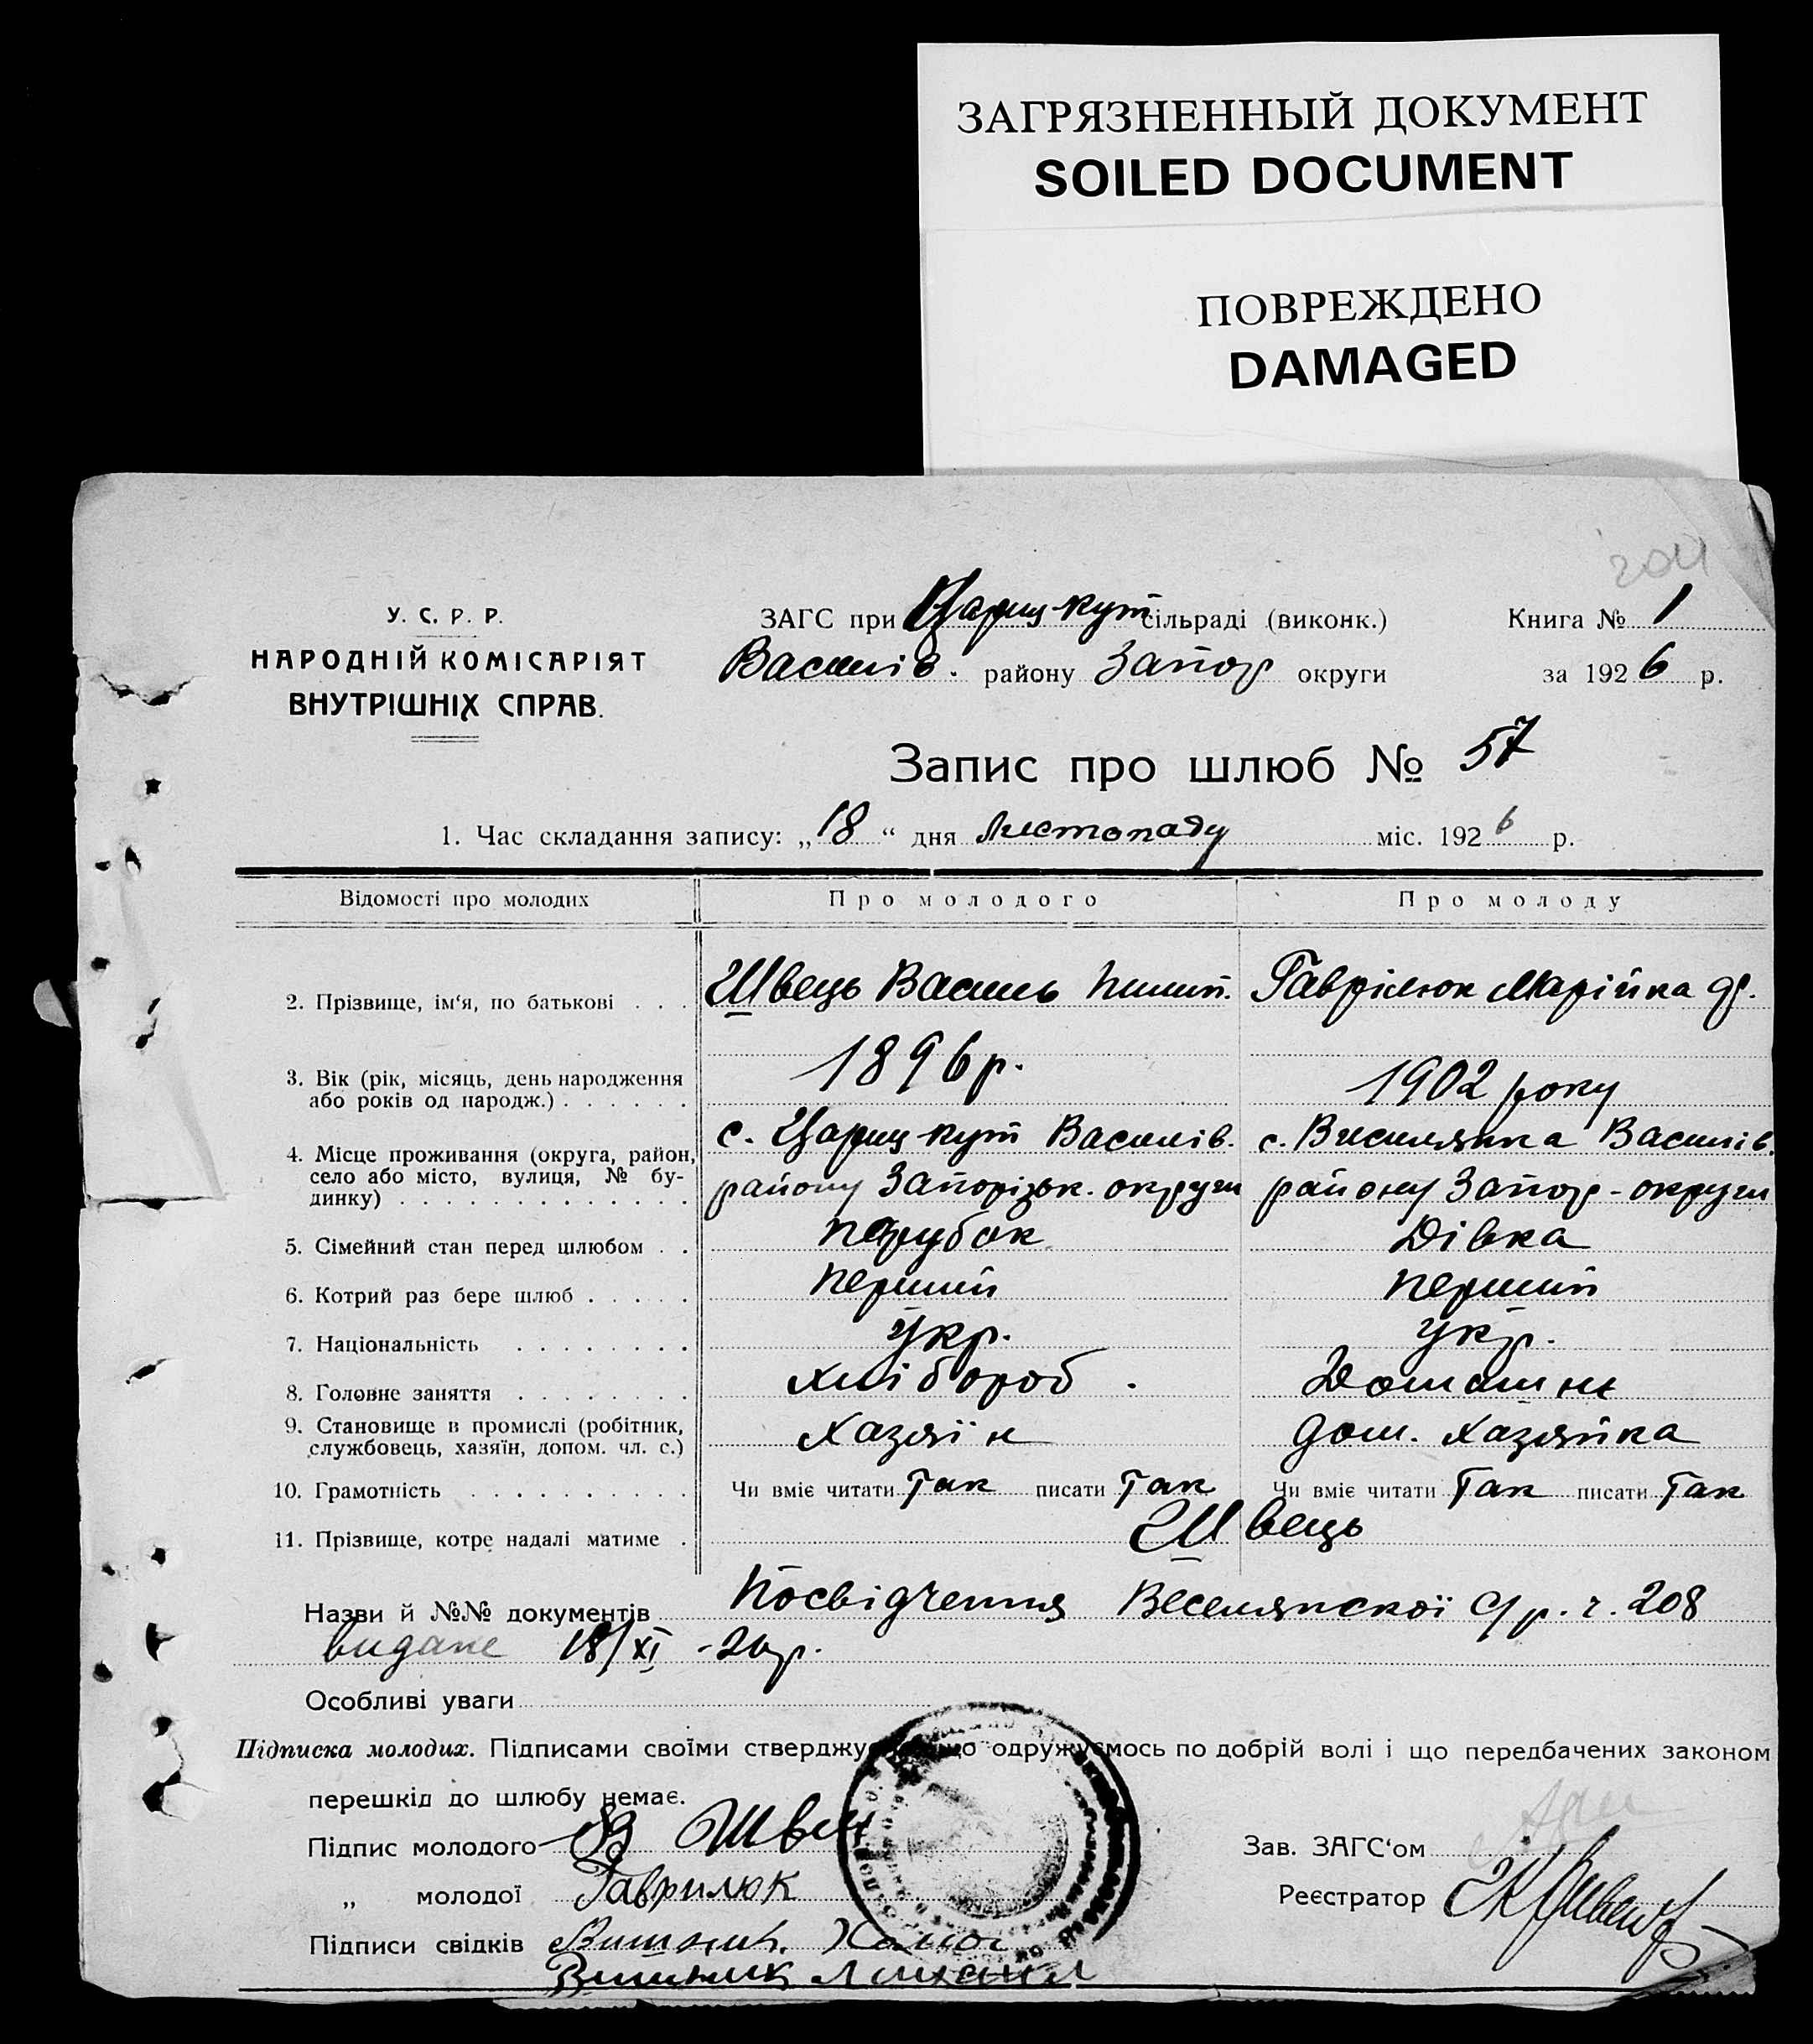 ЗАГРЯЗНЕННЫЙ ДОКУМЕНТ
SOILED DOCUMENT
ПОВРЕЖДЕНО
DAMAGED
У. С. Р. Р.
НАРОДНІЙ КОМІСАРІЯТ
ВНУТРІШНІХ СПРАВ.
ЗАГС при Цариц-кут сільраді (виконк.)
Василів. району Запор округи
Книга № 1
за 1926 р.
Запис про шлюб № 57
1. Час складання запису: „18“ дня листопаду міс. 1926 р.
Відомості про молодих Про молодого Про молоду
2. Прізвище, ім‘я, по батькові . . . Швець Василь Пилип. Гаврілюк Марійка
3. Вік (рік, місяць, день народження або років од народж.) . . . . . . 1896 р. 1902 року
4. Місце проживання (округа, район, село або місто, вулиця, № будинку) . . . . . . . . . . . . . с. Цариц-кут Василів. с. Виселянка Василів.
району Запорізьк. округи району Запор-округи
5. Сімейний стан перед шлюбом . . парубок Дівка
6. Котрий раз бере шлюб . . . . . перший перший
7. Національність . . . . . . . . Укр. Укр.
8. Головне заняття . . . . . . . . хлібороб. Домашнє
9. Становище в промислі (робітник, службовець, хазяїн, допом. чл. с.) Хазяїн дом. хазяйка
10. Грамотність . . . . . . . . . . Чи вміє читати Так писати Так Чи вміє читати Так писати Так
11. Прізвище, котре надалі матиме . Швець
Назви й №№ документів Посвідчення Веселянської с/р. ч. 208
видане 18/XI -26 р.
Особливі уваги
Підписка молодих. Підписами своїми стверджу що одружуємось по добрій волі і що передбачених законом
перешкід до шлюбу немає.
Підпис молодого Швец
„ молодої Гаврилюк
Зав. ЗАГС‘ом
Реєстратор
Підписи свідків